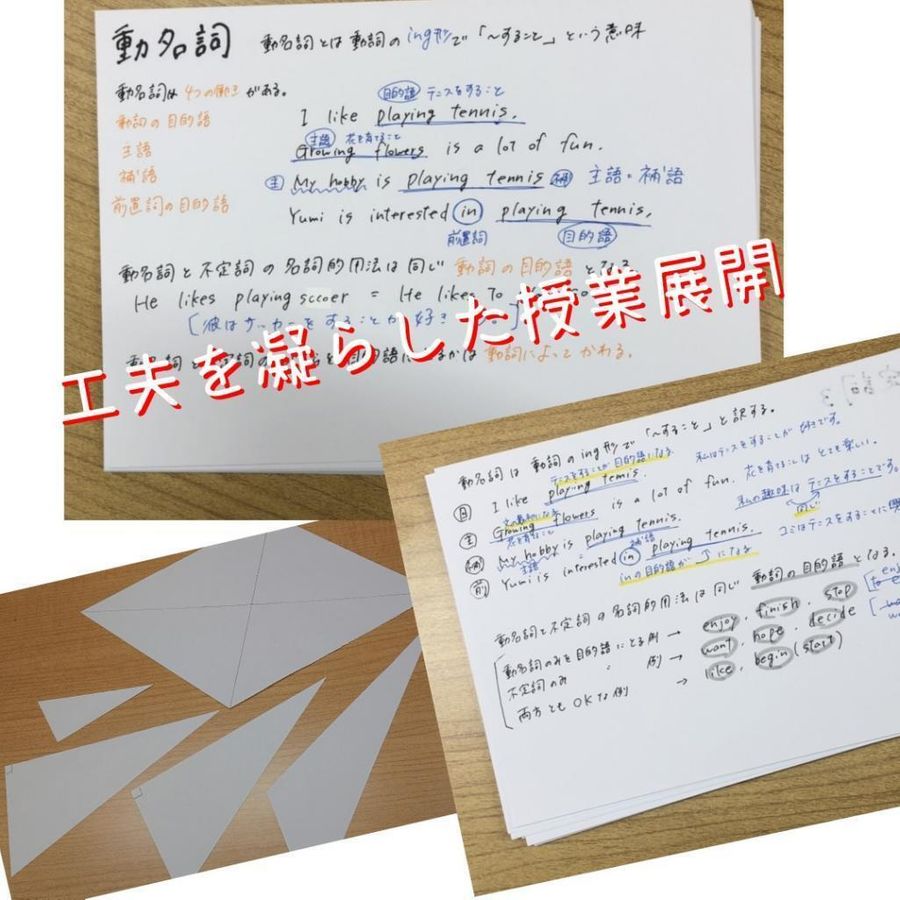 動名詞 動名詞とは動詞のing形で「〜すること」という意味
動名詞は4つの働きがある。
動詞の目的語
主語
補語
前置詞の目的語
目的語 テニスをすること
I like playing tennis.
主語 花を育てること
Growing flowers is a lot of fun.
主 My hobby is playing tennis 補 主語=補語
Yumi is interested in playing tennis.
前置詞 目的語
動名詞と不定詞の名詞的用法は同じ動詞の目的語となる
He likes playing sccoer = He likes to
[彼はサッカーをすることが好き
工夫を凝らした授業展開
動名詞と 目的語に かは動詞によってかわる。
動名詞は動詞のing形で「〜すること」と訳する。
テニスをすることが目的語になる
目 I like playing tennis. 私はテニスをすることが好きです。
主 Growing flowers is a lot of fun. 花を育てることはとても楽しい。
花を育てること
補 My hobby is playing tennis. 私の趣味はテニスをすることです。
主語 補語 同じ
前 Yumi is interested in playing tennis. ユミはテニスをすることに
inの目的語が になる
動名詞と不定詞の名詞的用法は同じ動詞の目的語となる。
動名詞のみを目的語にとる例 → enjoy, finish, stop
不定詞のみ 〃 例 → want, hope, decide
両方ともOKな例 → like, begin (start)